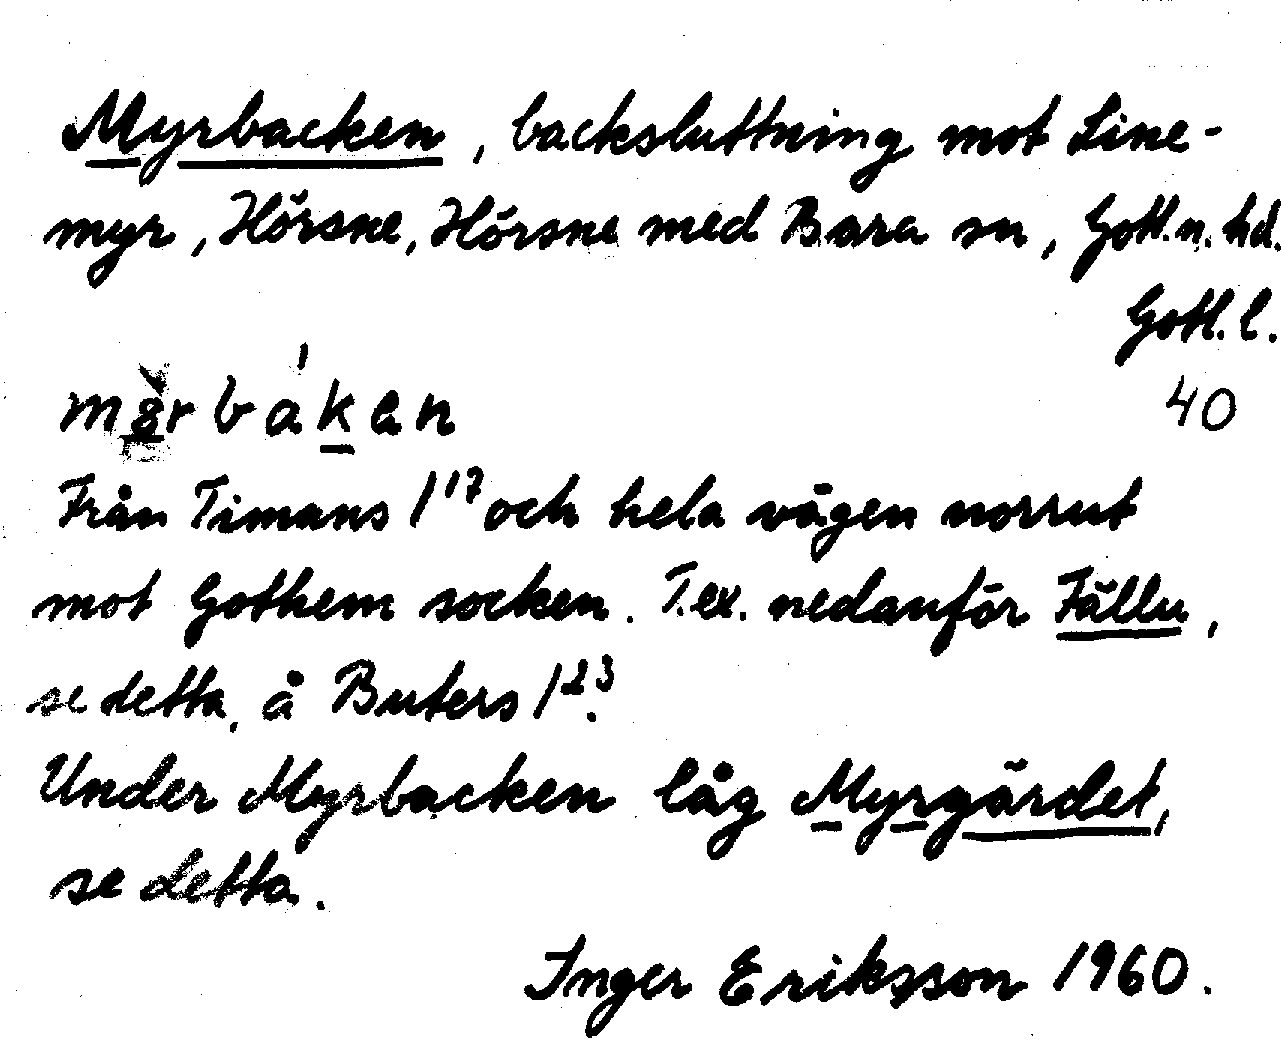 Myrbacken, backsluttning mot Line-
myr, Hörsne, Hörsne med Bara sn, Gotl. n. hd.
Gotl. l.
40
Från Timans 1¹⁷ och hela vägen norrut
mot Gothem socken. T.ex. nedanför Fällu,
se detta, å Buters 1²³.
Under Myrbacken låg Myrgärdet,
se detta.
Inger Eriksson 1960.